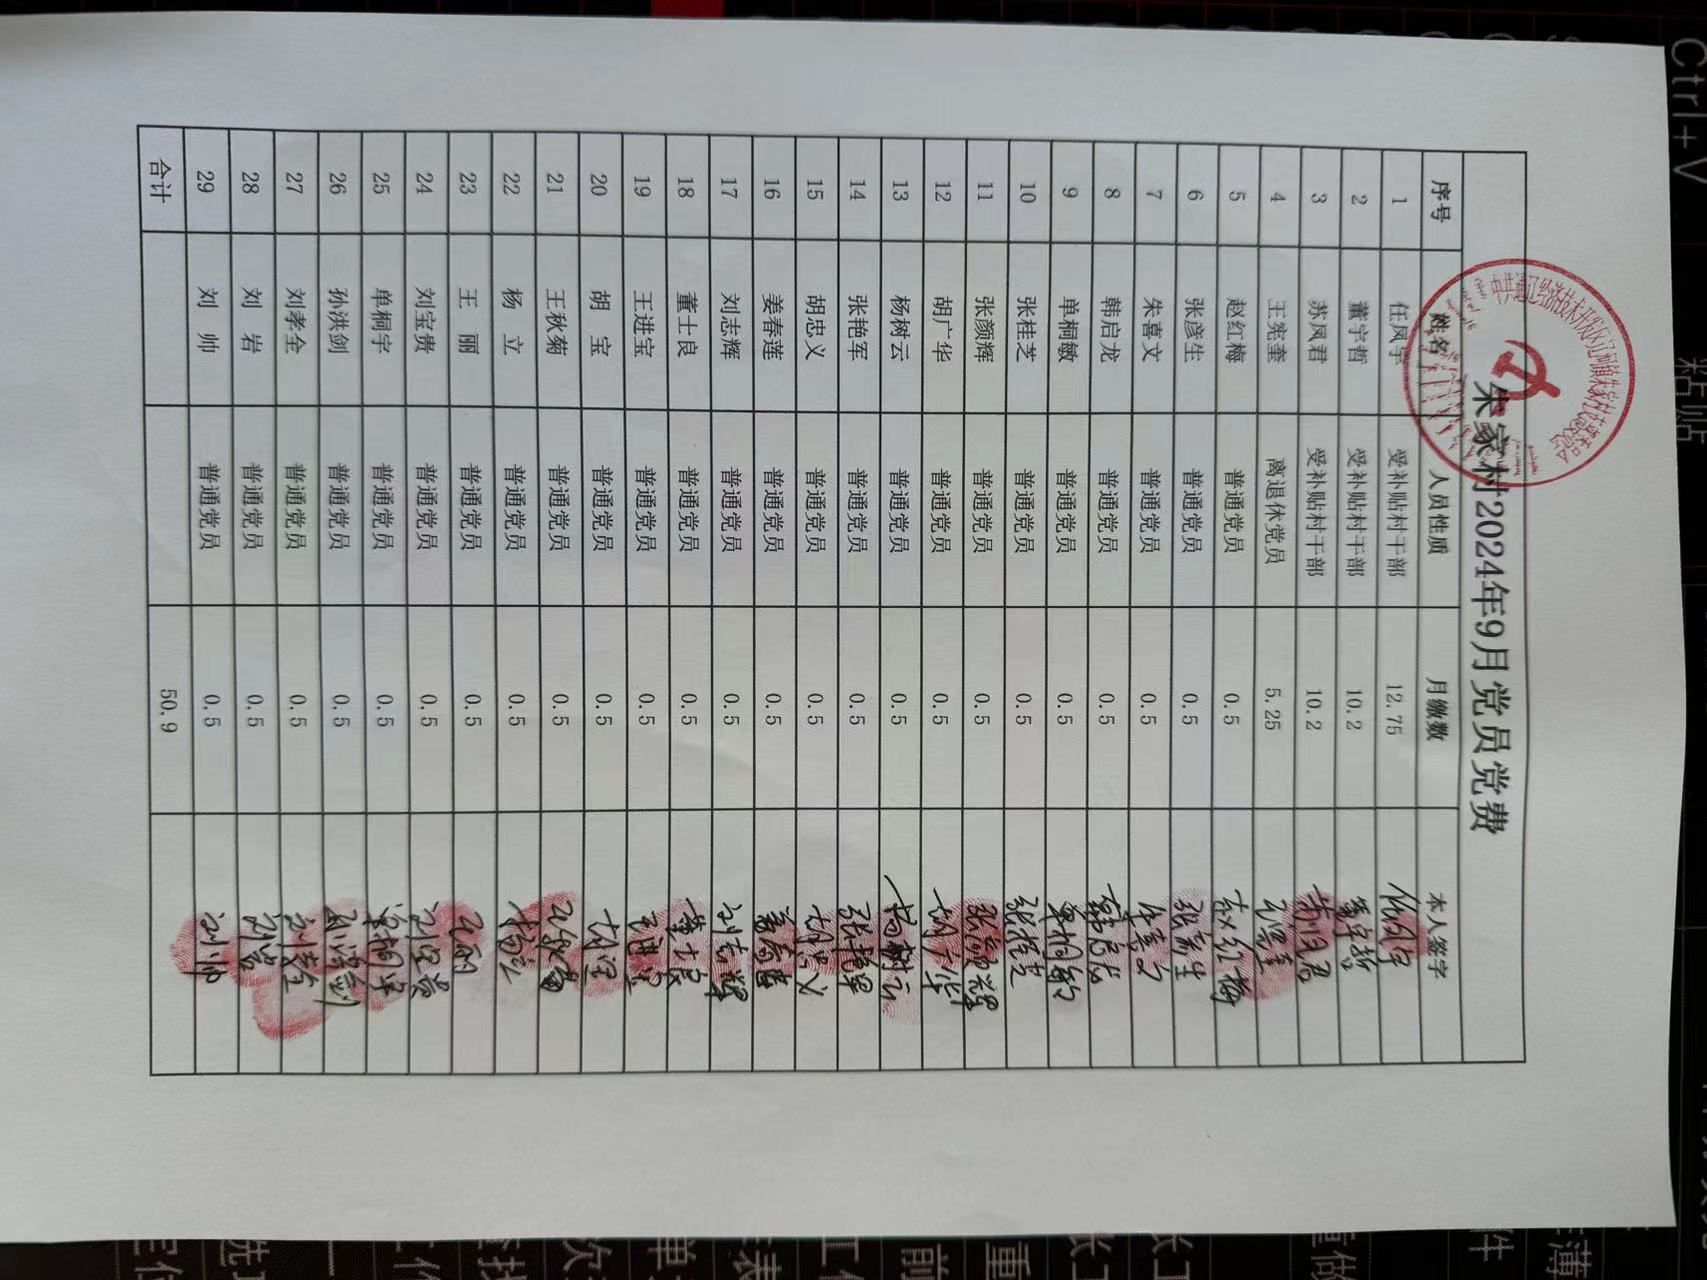 朱家村2024年9月党员党费
序号 姓名 人员性质 月缴数 本人签字
1 任凤宇 受补贴村干部 12.75 任凤宇
2 董宇哲 受补贴村干部 10.2 董宇哲
3 苏凤君 受补贴村干部 10.2 苏凤君
4 王宪奎 离退休党员 5.25 王宪奎
5 赵红梅 普通党员 0.5 赵红梅
6 张彦生 普通党员 0.5 张彦生
7 朱喜文 普通党员 0.5 朱喜文
8 韩启龙 普通党员 0.5 韩启龙
9 单桐敏 普通党员 0.5 单桐敏
10 张桂芝 普通党员 0.5 张桂芝
11 张颜辉 普通党员 0.5 张颜辉
12 胡广华 普通党员 0.5 胡广华
13 杨树云 普通党员 0.5 杨树云
14 张艳军 普通党员 0.5 张艳军
15 胡忠义 普通党员 0.5 胡忠义
16 姜春莲 普通党员 0.5
17 刘志辉 普通党员 0.5 刘志辉
18 董士良 普通党员 0.5 董士良
19 王进宝 普通党员 0.5 王进宝
20 胡宝 普通党员 0.5 胡宝
21 王秋菊 普通党员 0.5 王秋菊
22 杨立 普通党员 0.5 杨立
23 王丽 普通党员 0.5 王丽
24 刘宝贵 普通党员 0.5 刘宝贵
25 单桐宇 普通党员 0.5 单桐宇
26 孙洪剑 普通党员 0.5 孙洪剑
27 刘孝全 普通党员 0.5 刘孝全
28 刘岩 普通党员 0.5 刘岩
29 刘帅 普通党员 0.5 刘帅
合计 50.9
Ctrl+V
粘贴